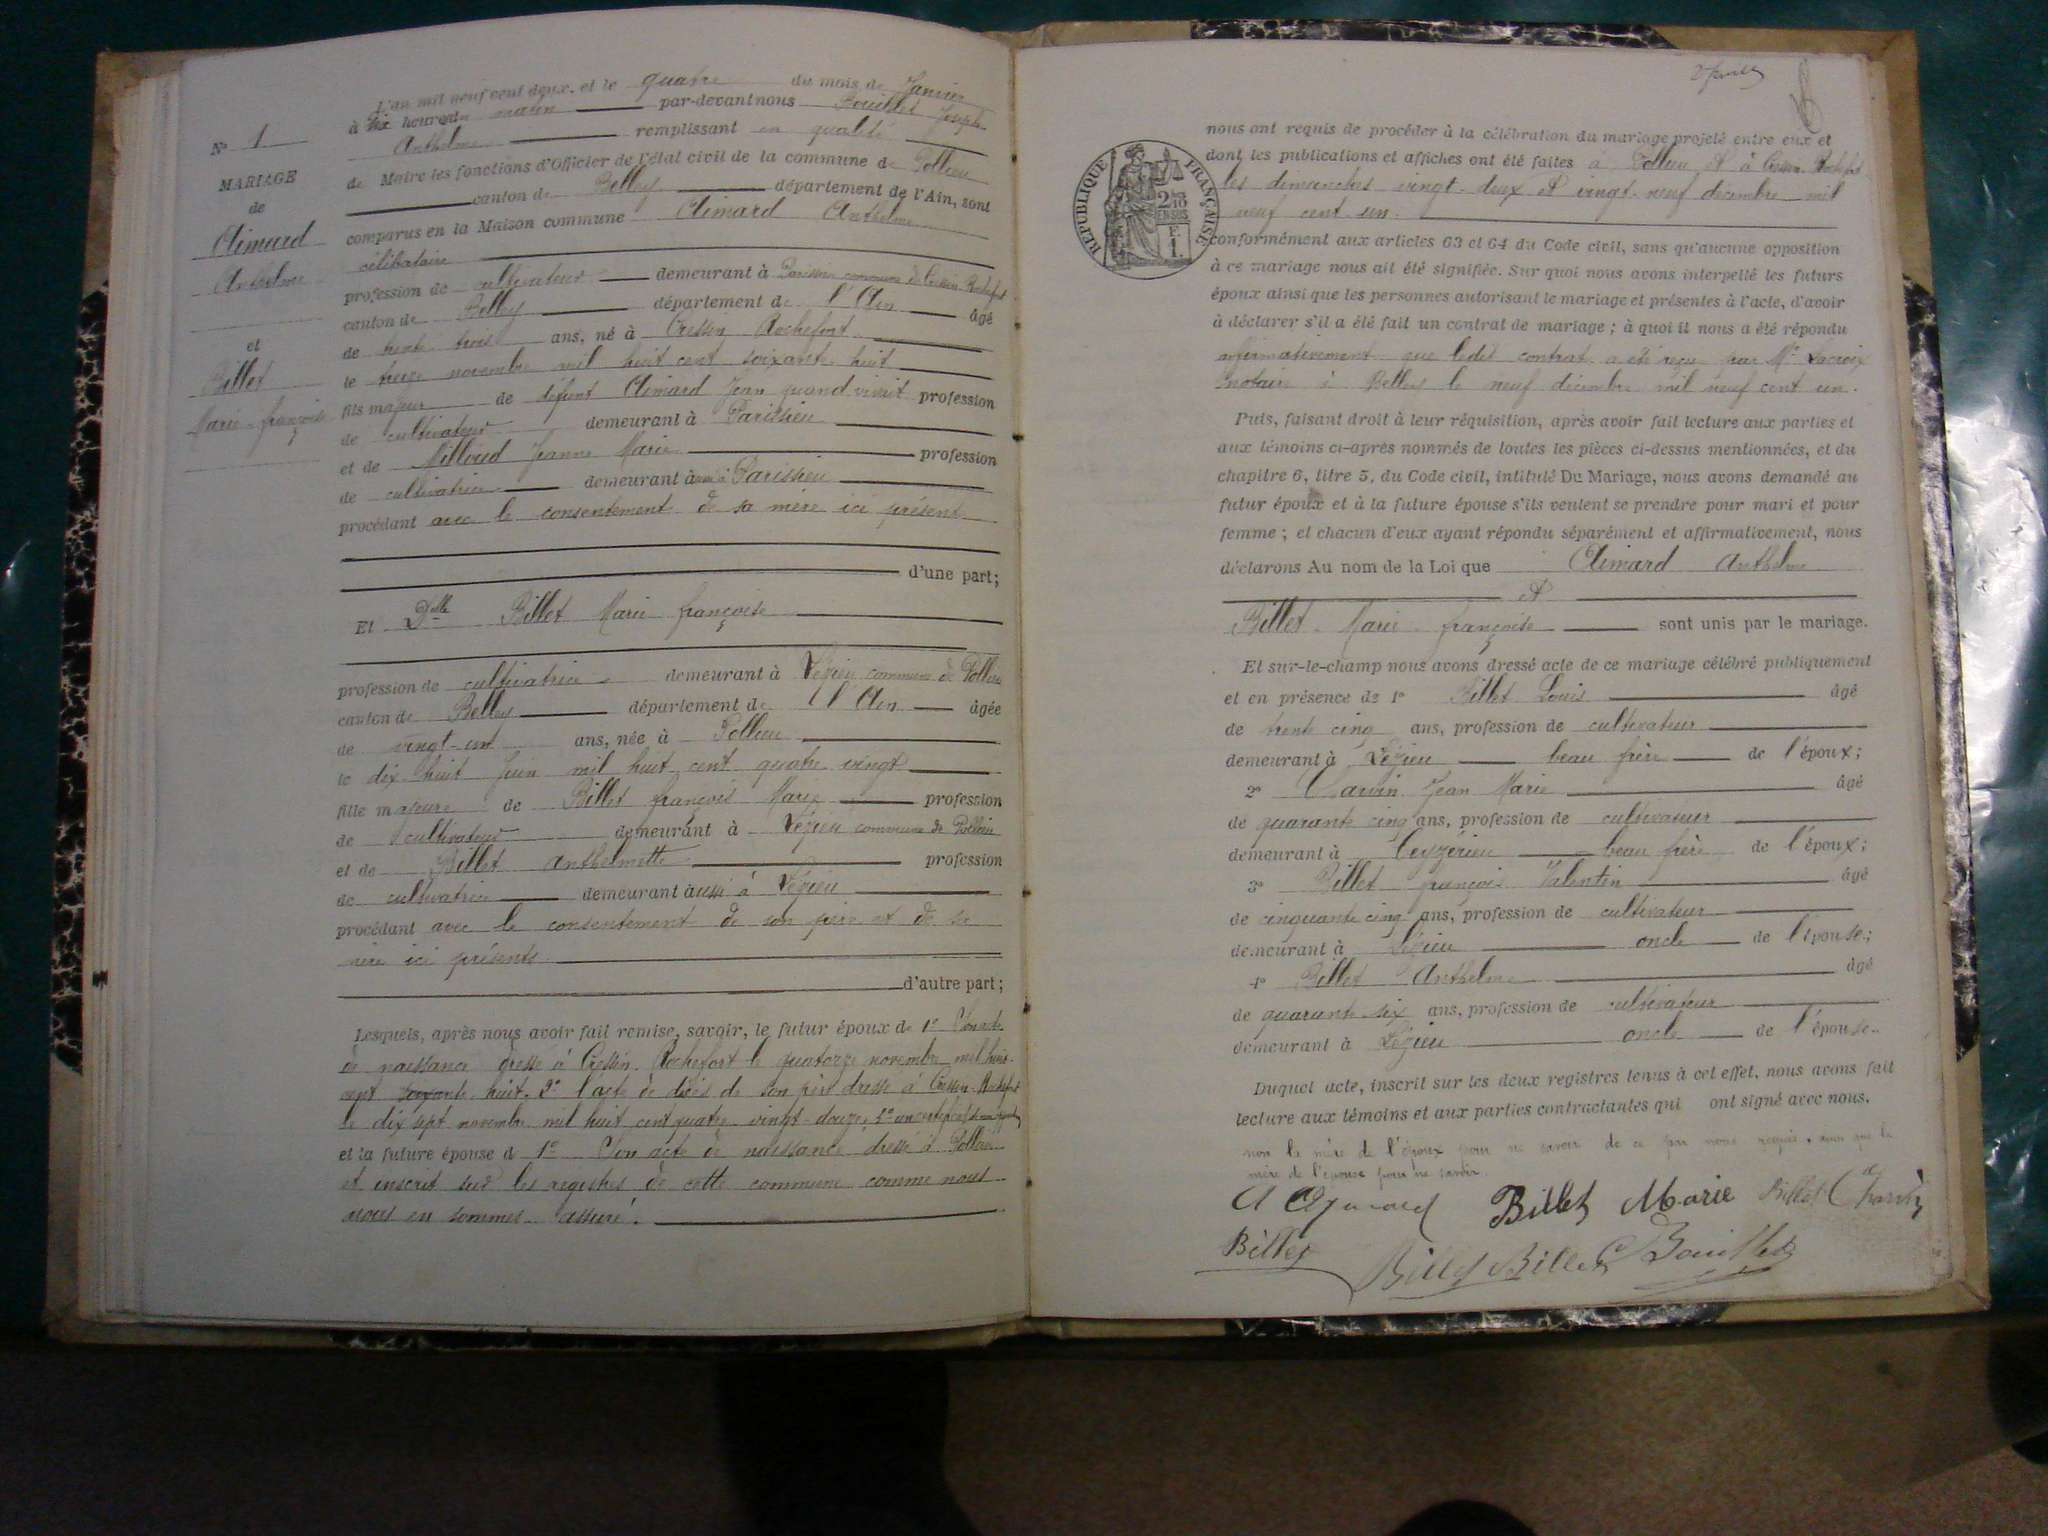 N° 1
MARIAGE
de
Aimard
Anthelme
et
Billet
Marie françoise
L'an mil neuf cent deux, et le quatre du mois de Janvier
à dix heures du matin par-devant nous Bouillet Joseph
Anthelme remplissant en qualité
de Maire les fonctions d'Officier de l'état civil de la commune de Pollieu
canton de Belley département de l'Ain, sont
comparus en la Maison commune Aimard Anthelme
célibataire
profession de cultivateur demeurant à Parissieu commune de Cressin Rochefort
canton de Belley département de l'Ain âgé
de trente trois ans, né à Cressin Rochefort
le treize novembre mil huit cent soixante huit
fils majeur de défunt Aimard Jean quand vivait profession
de cultivateur demeurant à Parissieu
et de Milloud Jeanne Marie profession
de cultivatrice demeurant à Parissieu
procédant avec le consentement de sa mère ici présent
d'une part;
Et Dlle Billet Marie françoise
profession de cultivatrice demeurant à Végieu commune de Pollieu
canton de Belley département de l'Ain âgée
de vingt-un ans, née à Pollieu
le dix huit Juin mil huit cent quatre vingt
fille majeure de Billet françois Marie profession
de cultivateur demeurant à Végieu commune de Pollieu
et de Billet Anthelmette profession
de cultivatrice demeurant aussi à Végieu
procédant avec le consentement de son père et de sa
mère ici présents
d'autre part;
Lesquels, après nous avoir fait remise, savoir, le futur époux de 1° Son acte
de naissance dressé à Cressin Rochefort le quatorze novembre mil huit
cent soixante huit. 2° l'acte de décès de son père dressé à Cressin-Rochefort
le dix sept novembre mil huit cent quatre vingt douze, 3° un certificat
et la future épouse d 1° Son acte de naissance dressé à Pollieu
et inscrit sur les registres de cette commune comme nous
nous en sommes assuré.
RÉPUBLIQUE FRANÇAISE
2/10
EN SUS
F.
1.
nous ont requis de procéder à la célébration du mariage projeté entre eux et
dont les publications et affiches ont été faites à Pollieu et à Cressin Rochefort
les dimanches vingt-deux et vingt-neuf décembre mil
neuf cent un.
conformément aux articles 63 et 64 du Code civil, sans qu'aucune opposition
à ce mariage nous ait été signifiée. Sur quoi nous avons interpellé les futurs
époux ainsi que les personnes autorisant le mariage et présentes à l'acte, d'avoir
à déclarer s'il a été fait un contrat de mariage; à quoi il nous a été répondu
affirmativement que ledit contrat a été reçu par Me Lacroix
notaire à Belley le neuf décembre mil neuf cent un.
Puis, faisant droit à leur réquisition, après avoir fait lecture aux parties et
aux témoins ci-après nommés de toutes les pièces ci-dessus mentionnées, et du
chapitre 6, titre 5, du Code civil, intitulé Du Mariage, nous avons demandé au
futur époux et à la future épouse s'ils veulent se prendre pour mari et pour
femme; et chacun d'eux ayant répondu séparément et affirmativement, nous
déclarons Au nom de la Loi que Aimard Anthelme
et
Billet Marie françoise sont unis par le mariage.
Et sur-le-champ nous avons dressé acte de ce mariage célébré publiquement
et en présence de 1° Billet Louis âgé
de trente cinq ans, profession de cultivateur
demeurant à Végieu beau frère de l'époux;
2° Jean Marie âgé
de quarante cinq ans, profession de cultivateur
demeurant à Ceyzérieu beau frère de l'époux;
3° Billet françois Valentin âgé
de cinquante cinq ans, profession de cultivateur
demeurant à Végieu oncle de l'épouse;
4° Billet Anthelme âgé
de quarante six ans, profession de cultivateur
demeurant à Végieu oncle de l'épouse.
Duquel acte, inscrit sur les deux registres tenus à cet effet, nous avons fait
lecture aux témoins et aux parties contractantes qui ont signé avec nous,
non la mère de l'époux pour ne savoir de ce par nous requis, non que la
mère de l'épouse pour ne savoir.
A Aymard Billet Marie Billet
Billet Billet Billet Bouillet